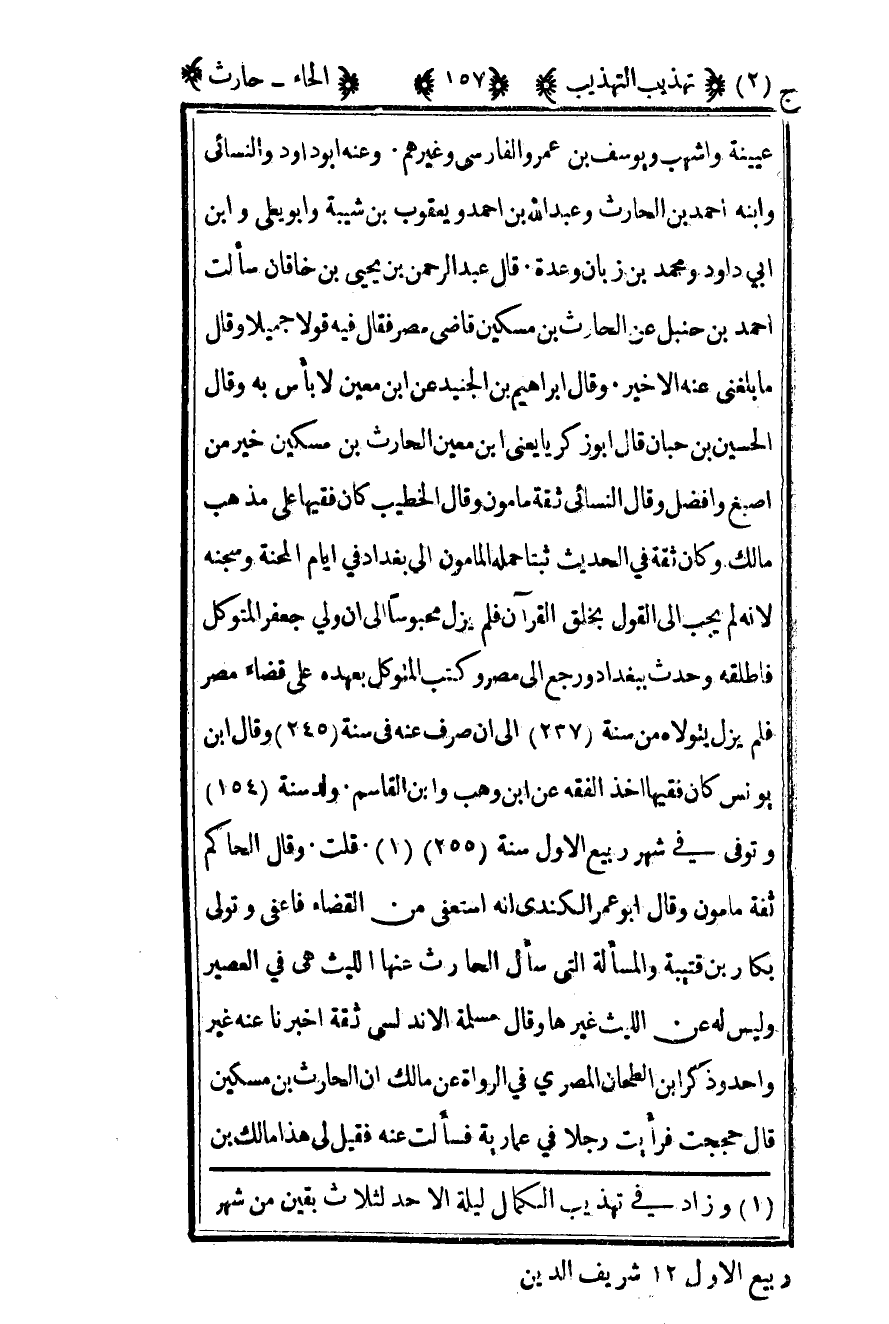 ج (٢) ﴿ تهذيب التهذيب ﴾ ﴿ ١٥٧ ﴾ ﴿ الحاء - حارث ﴾
عيينة واشهب ويوسف بن عمرو الفارسى وغيرهم · وعنه ابو داود والنسائى
وابنه احمد بن الحارث وعبدالله بن احمد ويعقوب بن شيبة وابو يعلى وابن
ابي داود ومحمد بن زبان وعدة · قال عبدالرحمن بن يحيى بن خاقان سألت
احمد بن حنبل عن الحارث بن مسكين قاضى مصر فقال فيه قولا جميلا وقال
ما بلغنى عنه الاخير · وقال ابراهيم بن الجنيد عن ابن معين لا بأس به وقال
الحسين بن حبان قال ابوزكريا يعنى ابن معين الحارث بن مسكين خير من
اصبغ وافضل وقال النسائى ثقة مامون وقال الخطيب كان فقيها على مذهب
مالك وكان ثقة في الحديث ثبتا حمله المامون الى بغداد في ايام المحنة وسجنه
لانه لم يجب الى القول بخلق القرآن فلم يزل محبوساً الى ان ولي جعفر المتوكل
فاطلقه وحدث ببغداد ورجع الى مصر وكتب المتوكل بعهده على قضاء مصر
فلم يزل يتولاه من سنة (٢٣٧) الى ان صرف عنه فى سنة (٢٤٥) وقال ابن
يونس كان فقيها اخذ الفقه عن ابن وهب وابن القاسم · ولد سنة (١٥٤)
وتوفى في شهر ربيع الاول سنة (٢٥٥) (١) · قلت · وقال الحاكم
ثقة مامون وقال ابو عمر الكندى انه استعفى من القضاء فاعفى وتولى
بكار بن قتيبة والمسألة التى سأل الحارث عنها الليث هى في العصير
وليس له عن الليث غيرها وقال مسلمة الاندلسى ثقة اخبرنا عنه غير
واحد وذكر ابن الطحان المصري في الرواة عن مالك ان الحارث بن مسكين
قال حججت فرأيت رجلا في عمارية فسألت عنه فقيل لى هذا مالك بن
(١) وزاد في تهذيب الكمال ليلة الاحد لثلاث بقين من شهر
ربيع الاول ١٢ شريف الدين